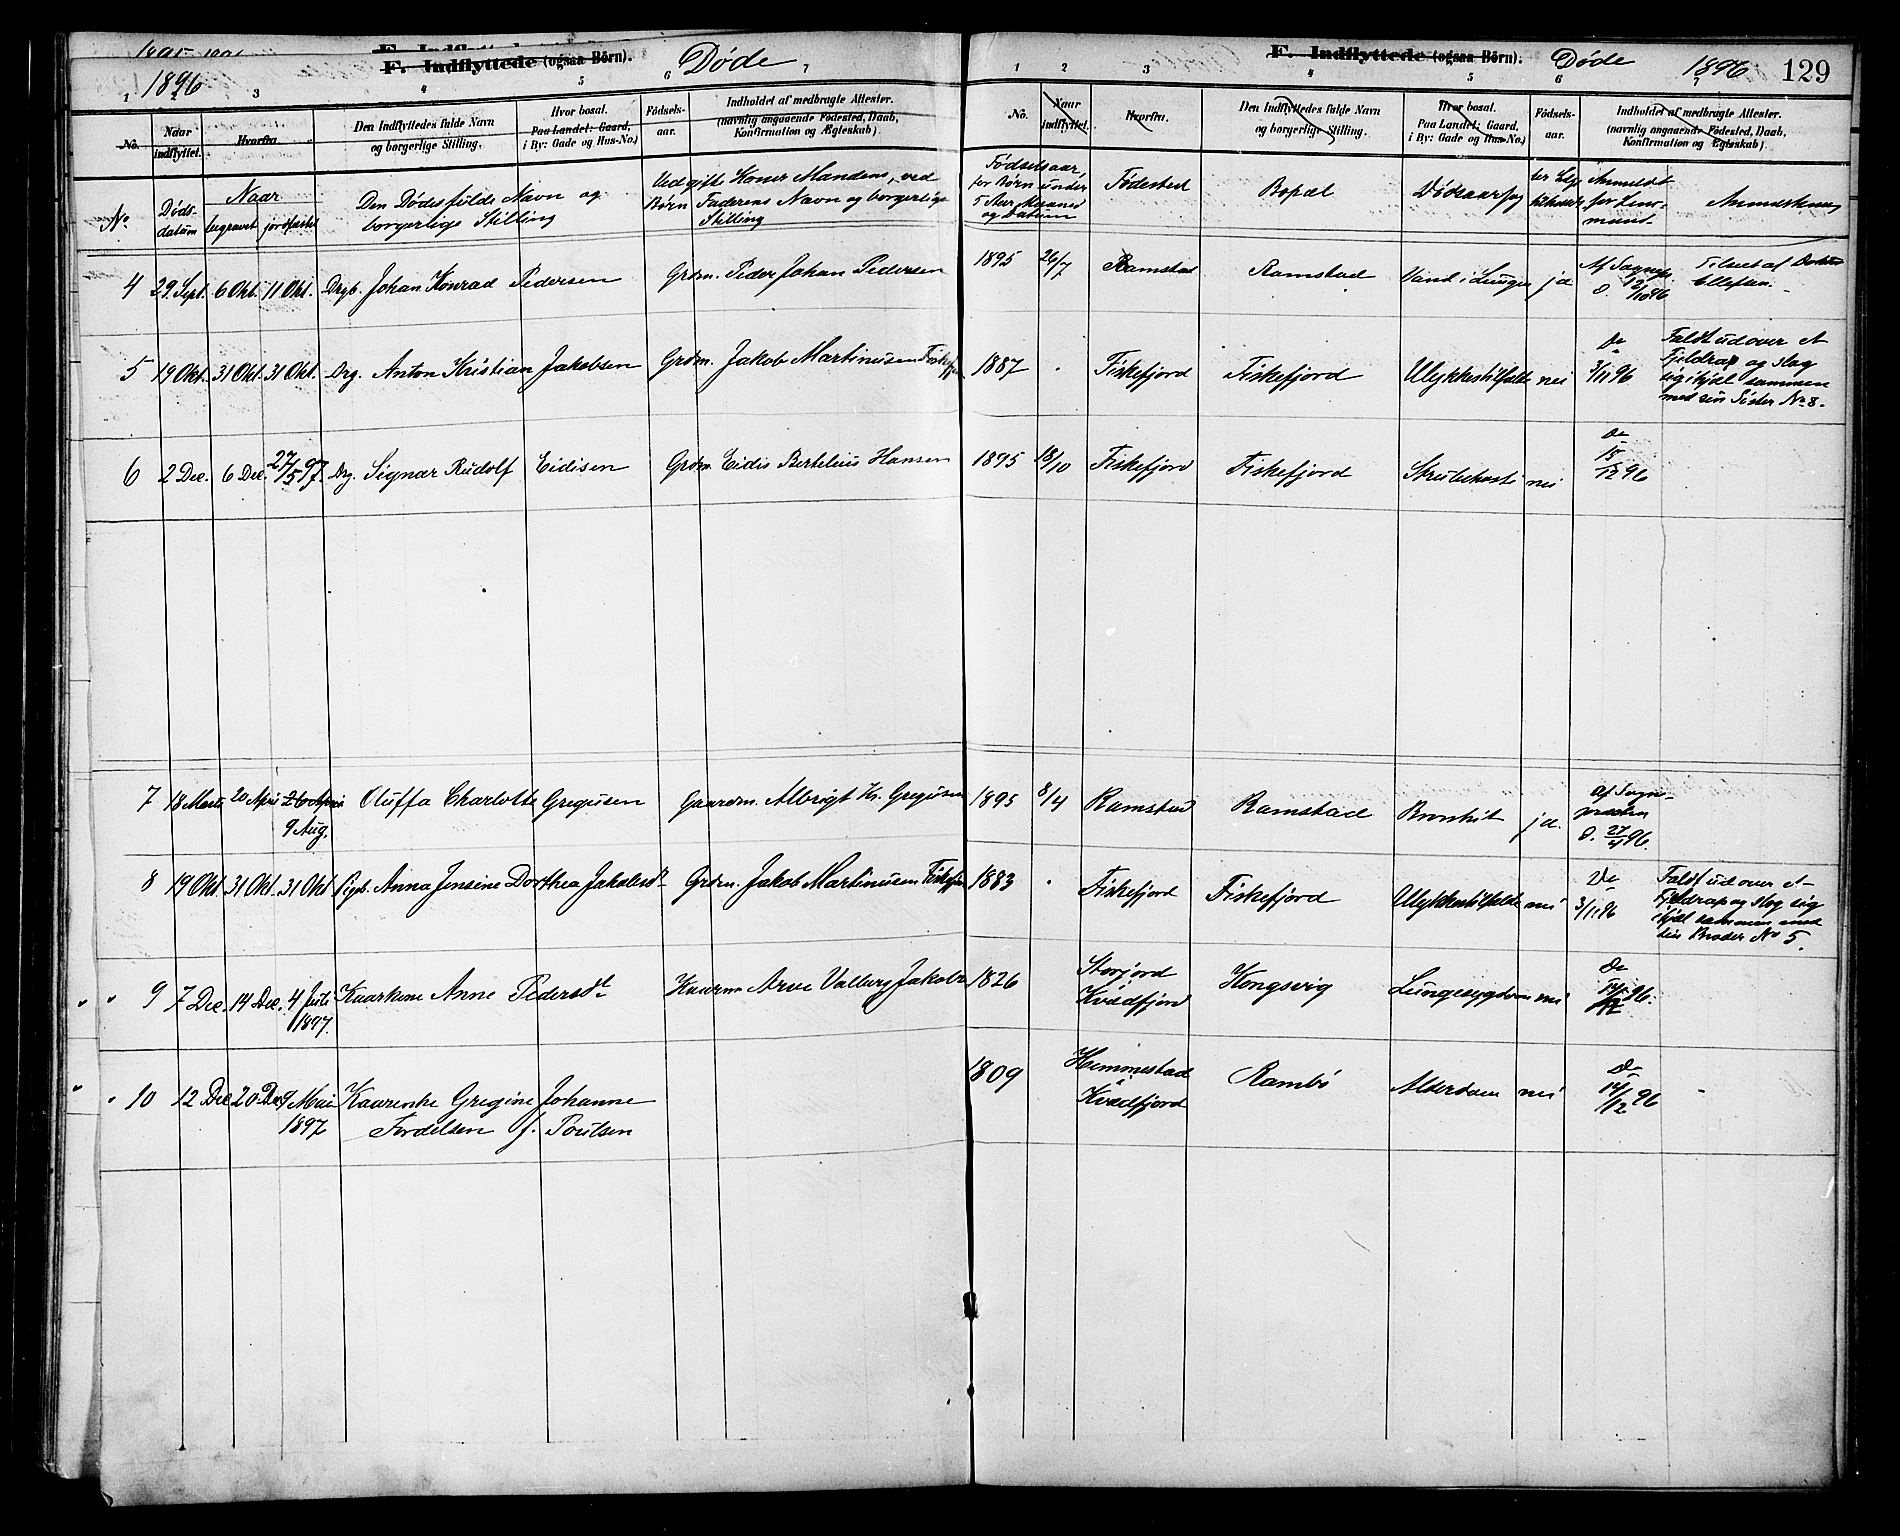 1896
F. Indflyttede (ogsaa Börn). Døde
1 2 3 4 5 6 7
No. Naar indflyttet. Hvorfra. Den Indflyttedes fulde Navn og borgerlige Stilling. Hvor bosat. Paa Landet: Gaard, i By: Gade og Hus-No.) Födsels-aar. Indholdet af medbragte Attester. (navnlig angaaende Födested, Daab, Konfirmation og Ægteskab).
No Døds-datum Naar begravet jordfæstet Den Dødes fulde Navn og borgerlige Stilling Ved gifte Koner Mandens, ved Børn Faderens Navn og borgerlige Stilling
4 29 Sept. 6 Okt. 11 Okt. Drgb. Johan Konrad Pedersen Grdm. Peder Johan Pedersen
5 19 Okt. 31 Okt. 31 Okt. Drg. Anton Kristian Jakobsen Grdm. Jakob Martinusen Fiskefj
6 2 Dec. 6 Dec. 27/5 97. Drg. Signar Rudolf Eidisen Grdm. Eidis Bertelius Hansen
7 18 Marts 20 April 26 April Oluffa Charlotte Gregusen Gaardm. Albrigt Kr. Gregusen
9 Aug.
8 19 Okt. 31 Okt. 31 Okt Pigb. Anna Jensine Dorthea Jakobsdt Grdm. Jakob Martinusen Fiskefjor
9 7 Dec. 14 Dec. 4 Juli Kaarkone Anne Pedersdt Kaarm Arve Valberg Jakobs
1897.
10 12 Dec 20 Dec 9 Mai Kaarenke Gregine Johanne
1897 Tordelsen f. Poulsen
F. Indflyttede (ogsaa Börn). Døde 1896 129
1 2 3 4 5 6 7
No. Naar indflyttet. Hvorfra. Den Indflyttedes fulde Navn og borgerlige Stilling. Hvor bosat. Paa Landet: Gaard, i By: Gade og Hus-No.) Födsels-aar. Indholdet af medbragte Attester. (navnlig angaaende Födested, Daab, Konfirmation og Ægteskab).
Fødselsaar, for Børn under 5 Aar Maaned og Datum Fødested Bopæl Dødsaarsag Anmeldt for Lens-mand. Anmerkning
1895 26/7 Ramstad Ramstad Vand i Lunger ja Tilseet af Doktor
12/10 96 Ellefsen.
1887 Fiskefjord Fiskefjord Ulykkestilfælde nei Do 3/11 96 Faldt ud over et
Fjeldrap og slog
sig ihjel sammen
med sin Søster No 8.
1895 18/10 Fiskefjord Fiskefjord Strubehoste nei Do 15/12 96
1895 8/4 Ramstad Ramstad Bronkit ja. Af Sogne-
presten
d. 27/4 96.
1883 Fiskefjord Fiskefjord Ulykkestilfælde nei Do 3/11 96 Faldt ud over et
Fjeldrap og slog sig
ihjel sammen med
sin Broder No 5.
1826 Storjord Kvædfjord Kongsvig Lungesygdom nei Do 14/12 96.
1809 Hemmestad Kvædfjord Rambø Alderdom nei Do 14/12 96